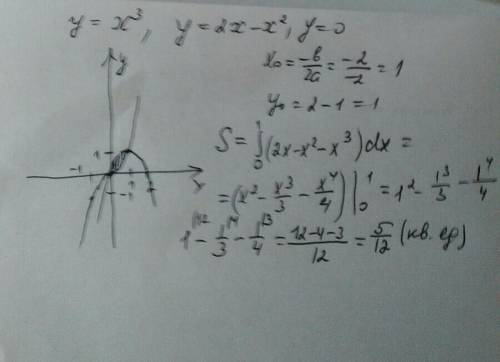 y = x³, y = 2x - x², y = 0
x₀ = -b/2a = -2/-2 = 1
y₀ = 2 - 1 = 1
S = ∫₀¹ (2x - x² - x³) dx =
= (x² - x³/3 - x⁴/4) |₀¹ = 1² - 1³/3 - 1⁴/4
1\¹² - 1\⁴/3 - 1\³/4 = (12-4-3)/12 = 5/12 (кв. ед)
y
x
-1
1
1
-1